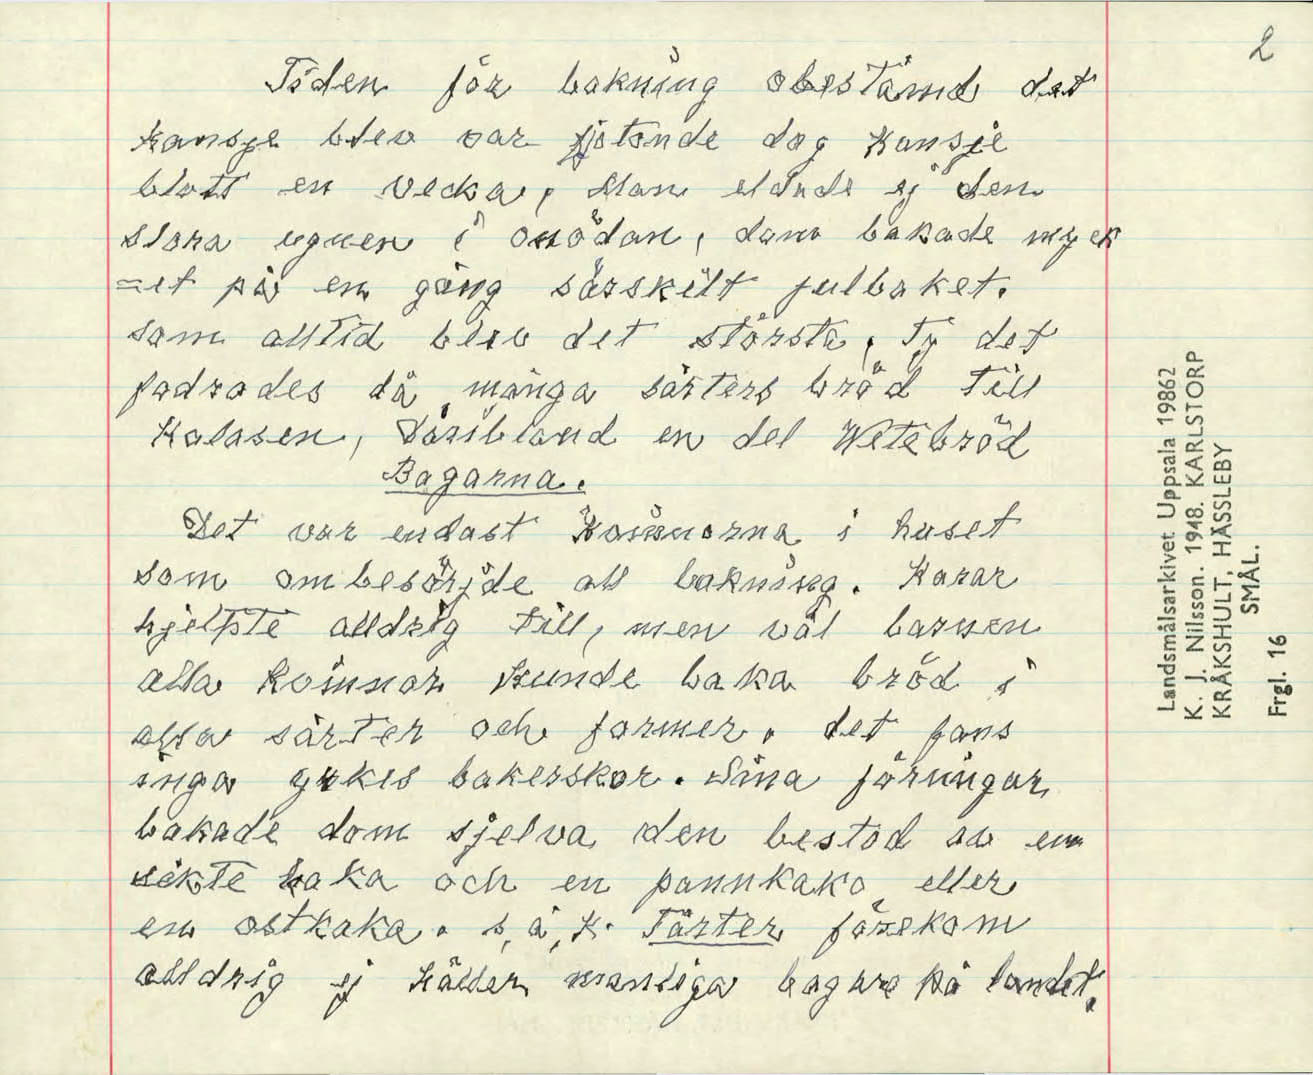 2
Tiden för bakning obestämd det
kansje blev var fjotonde dag kansje
blott en vecka, Man eldade ej den
stora ugnen i onödan, dom bakade myck
=et på en gång särskilt julbaket.
som alltid blev det största, Ty det
fodrades då många sårters bröd till
Kalasen, Däribland en del Wetebröd
Bagarna.
Det var endast Kvinnorna i huset
som ombesörjde all bakning. Karar
hjelpte alldrig till, men väl barnen
alla kvinnor kunde baka bröd i
alla sårter och former. det fans
inga yrkes bakerskor. Sina förningar
bakade dom sjelva den bestod av en
sikte kaka och en pannkako eller
en ostkaka. s, å, k. Tårter förekom
alldrig ej häller manliga bagare på landet.
Landsmålsarkivet Uppsala 19862
K. J. Nilsson. 1948. KARLSTORP
KRÅKSHULT, HÄSSLEBY
SMÅL.
Frgl. 16